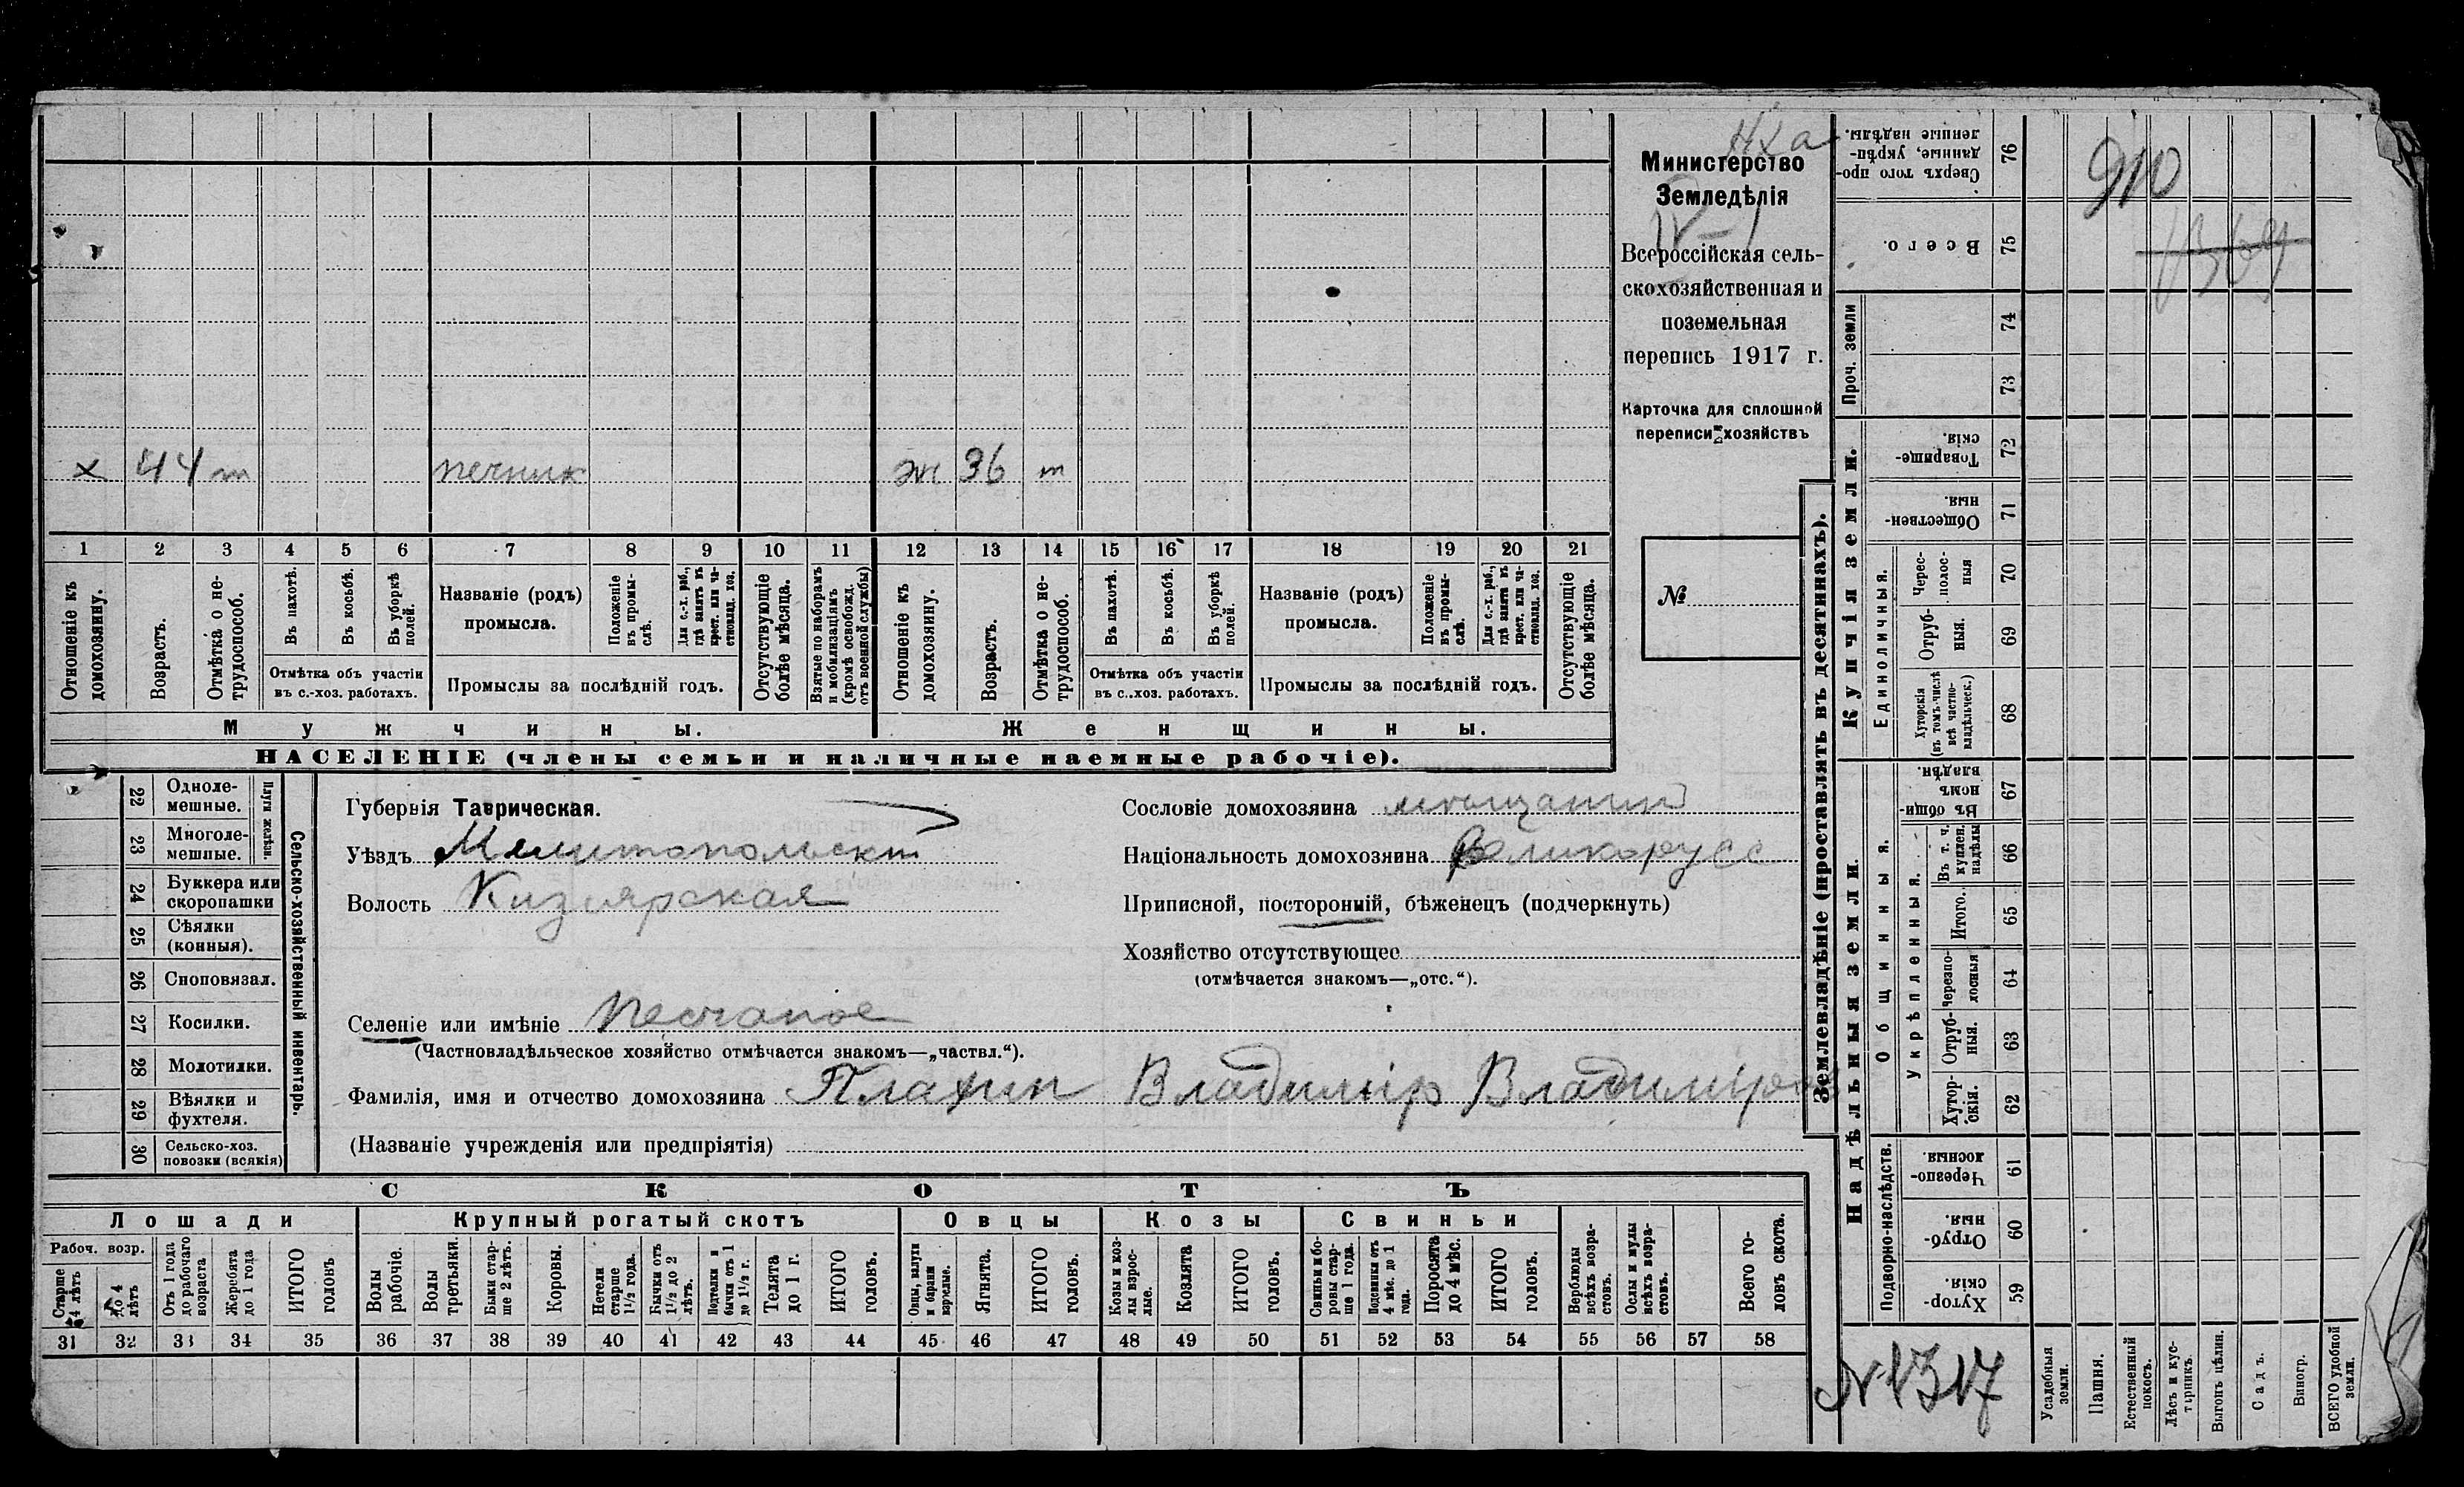 Министерство
Земледѣлія
IV-1
Всероссійская сель-
скохозяйственная и
поземельная
перепись 1917 г.
Карточка для сплошной
переписи хозяйствъ
№
х 44 т печник ж 36 т
1 2 3 4 5 6 7 8 9 10 11 12 13 14 15 16 17 18 19 20 21
Отношеніе къ домохозяину.
Возрастъ.
Отмѣтка о не-
трудоспособ.
Въ пахотѣ.
Въ косьбѣ.
Въ уборкѣ
полей.
Отмѣтка объ участіи
въ с.-хоз. работахъ.
Названіе (родъ)
промысла.
Положеніе
въ промы-
слѣ.
Для с.-х. раб.,
гдѣ занятъ въ
крест. или ча-
стновлад. хоз.
Промыслы за послѣдній годъ.
Отсутствующіе
болѣе мѣсяца.
Взятые по наборамъ
и мобилизаціямъ
(кромѣ освобожд.
отъ военной службы)
Отношеніе къ
домохозяину.
Возрастъ.
Отмѣтка о не-
трудоспособ.
Въ пахотѣ.
Въ косьбѣ.
Въ уборкѣ
полей.
Отмѣтка объ участіи
въ с.-хоз. работахъ.
Названіе (родъ)
промысла.
Положеніе
въ промы-
слѣ.
Для с.-х. раб.,
гдѣ занята въ
крест. или ча-
стновлад. хоз.
Промыслы за послѣдній годъ.
Отсутствующіе
болѣе мѣсяца.
Мужчины.
Женщины.
НАСЕЛЕНІЕ (члены семьи и наличные наемные рабочіе).
22 Одноле-
мешные.
23 Многоле-
мешные.
Плуги желѣзн.
24 Буккера или
скоропашки
25 Сѣялки
(конныя).
26 Сноповязал.
27 Косилки.
28 Молотилки.
29 Вѣялки и
фухтеля.
30 Сельско-хоз.
повозки (всякія)
Сельско-хозяйственный инвентарь.
Губернія Таврическая.
Уѣздъ Мелитопольский
Волость Кизиярская
Селеніе или имѣніе Песчаное
(Частновладѣльческое хозяйство отмѣчается знакомъ—„частвл.“).
Фамилія, имя и отчество домохозяина Владимір Владиміров
(Названіе учрежденія или предпріятія)
Сословіе домохозяина мещанин
Національность домохозяина Великорусс
Приписной, посторонній, бѣженецъ (подчеркнуть)
Хозяйство отсутствующее
(отмѣчается знакомъ—„отс.“).
СКОТЪ
Лошади
Крупный рогатый скотъ
Овцы
Козы
Свиньи
Рабоч. возр.
Старше
4 лѣтъ
До 4
лѣтъ
Отъ 1 года
до рабочаго
возраста
Жеребята
до 1 года
ИТОГО
головъ
Волы
рабочіе.
Волы
третьяки.
Быки стар-
ше 2 лѣтъ.
Коровы.
Нетели
старше
1½ года.
Бычки отъ
1½ до 2
лѣтъ.
Подтелки и
бычки отъ 1
до 1½ г.
Телята
до 1 г.
ИТОГО
головъ.
Овцы, валухи
и бараны
взрослые.
Ягнята.
ИТОГО
головъ.
Козы и коз-
лы взрос-
лые.
Козлята
ИТОГО
головъ.
Свиньи и бо-
ровы стар-
ше 1 года.
Подсвинки отъ
4 мѣс. до 1
года.
Поросята
до 4 мѣс.
ИТОГО
головъ.
Верблюды
всѣхъ возра-
стовъ.
Ослы и мулы
всѣхъ возра-
стовъ.
Всего го-
ловъ скота.
31 32 33 34 35 36 37 38 39 40 41 42 43 44 45 46 47 48 49 50 51 52 53 54 55 56 57 58
Землевладѣніе (проставлять въ десятинахъ).
Купчія земли.
Надѣльныя земли.
Сверхъ того про-
данные, укрѣп-
ленные надѣлы.
76
910
Всего.
75
Проч. земли
74
73
Товарище-
скія.
72
Обществен-
ныя.
71
Единоличныя.
Черес-
полос-
ныя
70
Отруб-
ныя.
69
Хуторскія
(въ томъ числѣ
всѣ частно-
владѣльческ.)
68
Общинныя.
Въ общи-
номъ
владѣн.
67
Укрѣпленныя.
Въ т. ч.
куплен.
надѣлы
66
Итого.
65
Черезпо-
лосныя
64
Отруб-
ныя.
63
Хутор-
скія.
62
Подворно-наслѣдств.
Черезпо-
лосныя.
61
Отруб-
ныя
60
Хутор-
скія.
59
Усадебныя
земли.
Пашня.
Естественный
покосъ.
Лѣсъ и кус-
тарникъ.
Выгонъ цѣлин.
Садъ.
Виногр.
ВСЕГО удобной
земли.